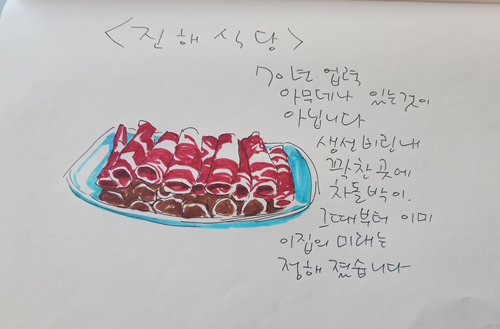 <진해식당>
70년. 업력
아무데나 있는것이
아닙니다
생선 비린내
꽉찬 곳에
차돌박이.
그때부터 이미
이집의 미래는
정해 졌습니다